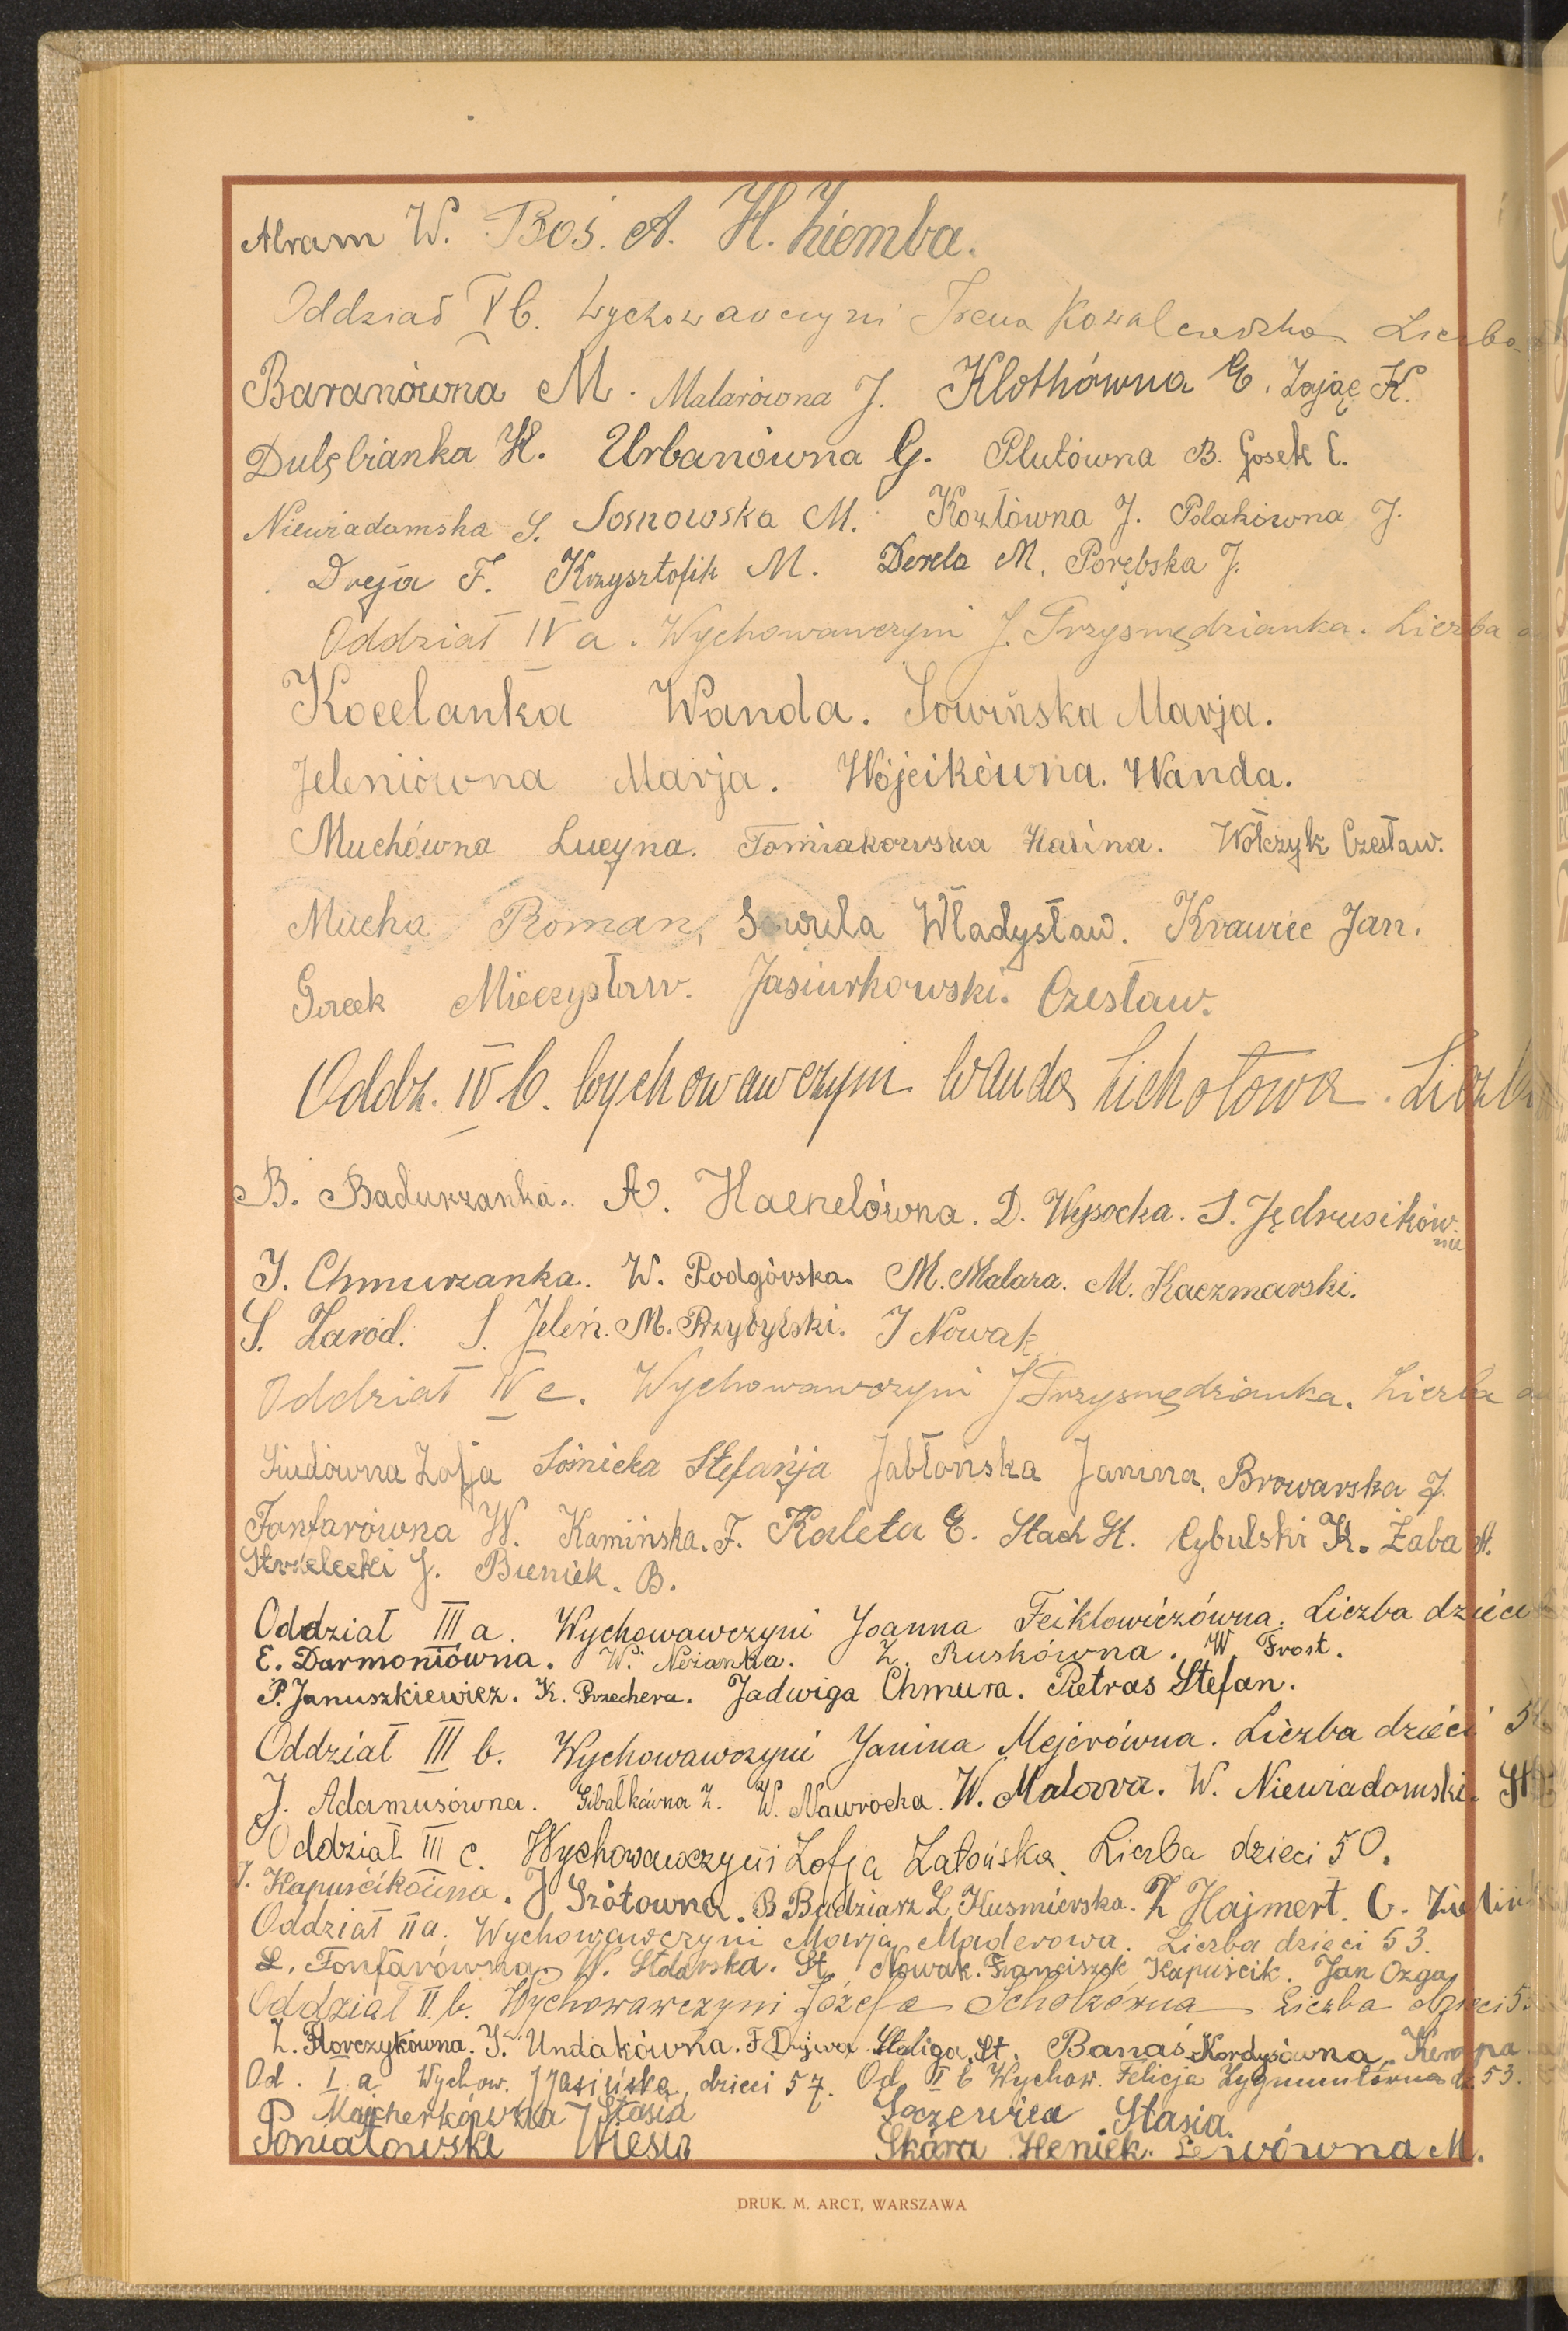 Abram W. Boś. A. H. Ziemba.
Oddział V b. Wychowawczyni Irena Kowalczewska Liczba
Baranówna M. Malarówna J. Klothówna E. Zając K.
Dulębianka H. Urbanówna G. Plutówna B. Gosek E.
Niewiadomska S. Sosnowska M. Kozłówna J. Polakówna J.
Dreja F. Krzysztofik M. Derela M. Porębska J.
Oddział IV a. Wychowawczyni J. Trzysmędzianka. Liczba
Kocelanka Wanda. Sowińska Marja.
Jeleniówna Marja. Wójcikówna. Wanda.
Muchówna Lucyna. Tomiakowska Halina. Wołczyk Czesław.
Mucha Roman, Sowula Władysław. Krawiec Jan.
Gacek Mieczysław. Jasiurkowski. Czesław.
Oddz. IV b. Wychowawczyni Wanda Lichotowa. Liczba
B. Badurzanka. A. Haenelówna. D. Wysocka. S. Jędrusikówna
J. Chmurzanka. W. Podgórska. M. Malara. M. Kaczmarski.
S. Zaród. S. Jeleń. M. Przybylski. J Nowak
Oddział IV c. Wychowawczyni J Trzysmędzianka. Liczba
Siudówna Zofja Sośnicka Stefanja Jabłońska Janina. Browarska J.
Fonfarówna W. Kamińska. F. Kaleta E. Stach St. Cybulski K. Żaba A.
Strzelecki J. Bieniek. B.
Oddział III a. Wychowawczyni Joanna Feiklowiczówna. Liczba dzieci
E. Darmoniówna. W. Neżanka. Z. Ruskówna. W Frost.
P. Januszkiewicz. K. Przechera. Jadwiga Chmura. Pietras Stefan.
Oddział III b. Wychowawczyni Janina Mejerówna. Liczba dzieci
J. Adamusówna. Gibałkówna Z. W. Nawrocka. W. Malorra. W. Niewiadomski.
Oddział III c. Wychowawczyni Zofja Zatońska. Liczba dzieci 50.
J. Kapuścikówna. J Szótowna. B Badziarz L Kusmierska. Z Hajmert. C.
Oddział II a. Wychowawczyni Marja Maderowa. Liczba dzieci 53.
L. Fonfarówna W. Stolarska. St. Nowak. Franciszek Kapuścik. Jan Ozga
Oddział II. b. Wychowawczyni Józefa Scholzówna Liczba dzieci
Z. Florczykówna. J. Undakówna. F Dujwa Staliga. St. Banaś Kordysówna Kempa
Od. I. a Wychow. J Jasińska, dzieci 57. Od. II b Wychow. Felicja Zygmuntówna dz 53.
Majcherkówna Stasia Soczewica Stasia.
Poniatowski Wiesio Skóra Heniek. Lewówna M.
DRUK. M. ARCT, WARSZAWA